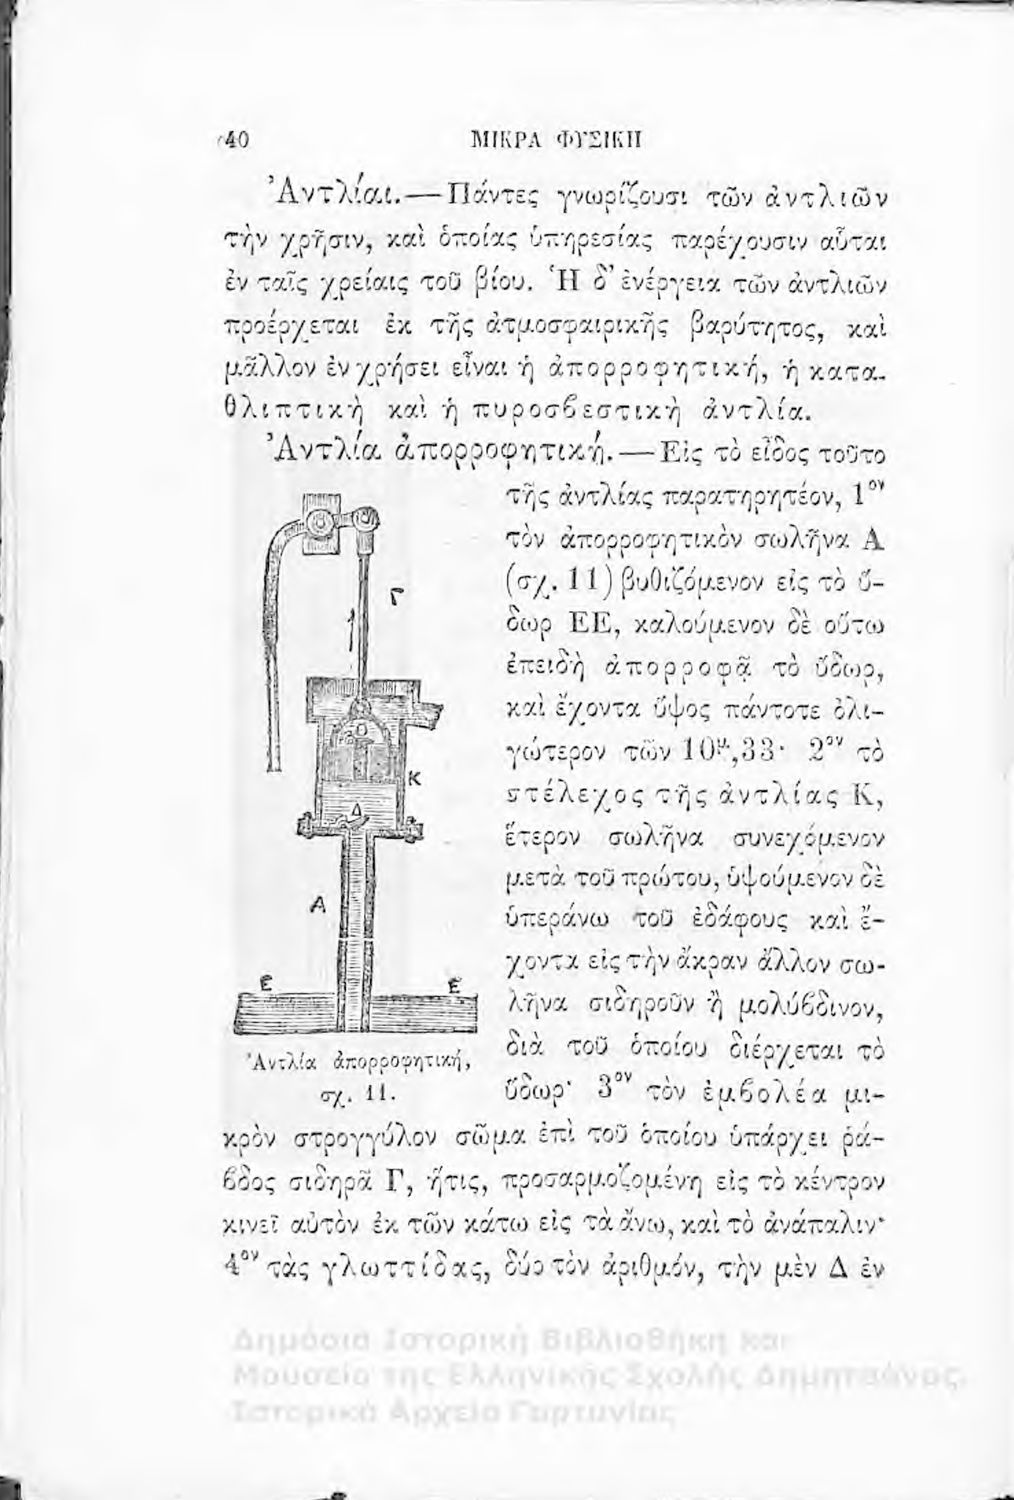 40 ΜΙΚΡΑ ΦΥΣΙΚΗ
Ἀντλίαι.— Πάντες γνωρίζουσι τῶν ἀντλιῶν
τὴν χρῆσιν, καὶ ὁποίας ὑπηρεσίας παρέχουσιν αὗται
ἐν ταῖς χρείαις τοῦ βίου. Ἡ δ' ἐνέργεια τῶν ἀντλιῶν
προέρχεται ἐκ τῆς ἀτμοσφαιρικῆς βαρύτητος, καὶ
μᾶλλον ἐν χρήσει εἶναι ἡ ἀπορροφητική, ἡ κατα-
θλιπτικὴ καὶ ἡ πυροσβεστικὴ ἀντλία.
Ἀντλία ἀπορροφητική.— Εἰς τὸ εἶδος τοῦτο
τῆς ἀντλίας παρατηρητέον, 1ον
τὸν ἀπορροφητικὸν σωλῆνα Α
(σχ. 11) βυθιζόμενον εἰς τὸ ὕ-
δωρ ΕΕ, καλούμενον δὲ οὕτω
ἐπειδὴ ἀπορροφᾷ τὸ ὕδωρ,
καὶ ἔχοντα ὕψος πάντοτε ὀλι-
γώτερον τῶν 10μ,33· 2ον τὸ
στέλεχος τῆς ἀντλίας Κ,
ἕτερον σωλῆνα συνεχόμενον
μετὰ τοῦ πρώτου, ὑψούμενον δὲ
ὑπεράνω τοῦ ἐδάφους καὶ ἔ-
χοντα εἰς τὴν ἄκραν ἄλλον σω-
λῆνα σιδηροῦν ἢ μολύβδινον,
διὰ τοῦ ὁποίου διέρχεται τὸ
ὕδωρ· 3ον τὸν ἐμβολέα μι-
Γ
Κ
Δ
Α
Ε Ε
Ἀντλία ἀπορροφητική,
σχ. 11.
κρὸν στρογγύλον σῶμα ἐπὶ τοῦ ὁποίου ὑπάρχει ῥά-
βδος σιδηρᾶ Γ, ἥτις, προσαρμοζομένη εἰς τὸ κέντρον
κινεῖ αὐτὸν ἐκ τῶν κάτω εἰς τὰ ἄνω, καὶ τὸ ἀνάπαλιν·
4ον τὰς γλωττίδας, δύο τὸν ἀριθμόν, τὴν μὲν Δ ἐν
Δημόσια Ιστορική Βιβλιοθήκη και
Μουσείο της Ελληνικής Σχολής Δημητσάνας.
Ιστορικό Αρχείο Γορτυνίας